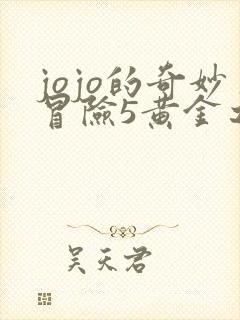 jojo的奇妙
冒險5黃金
吴天君